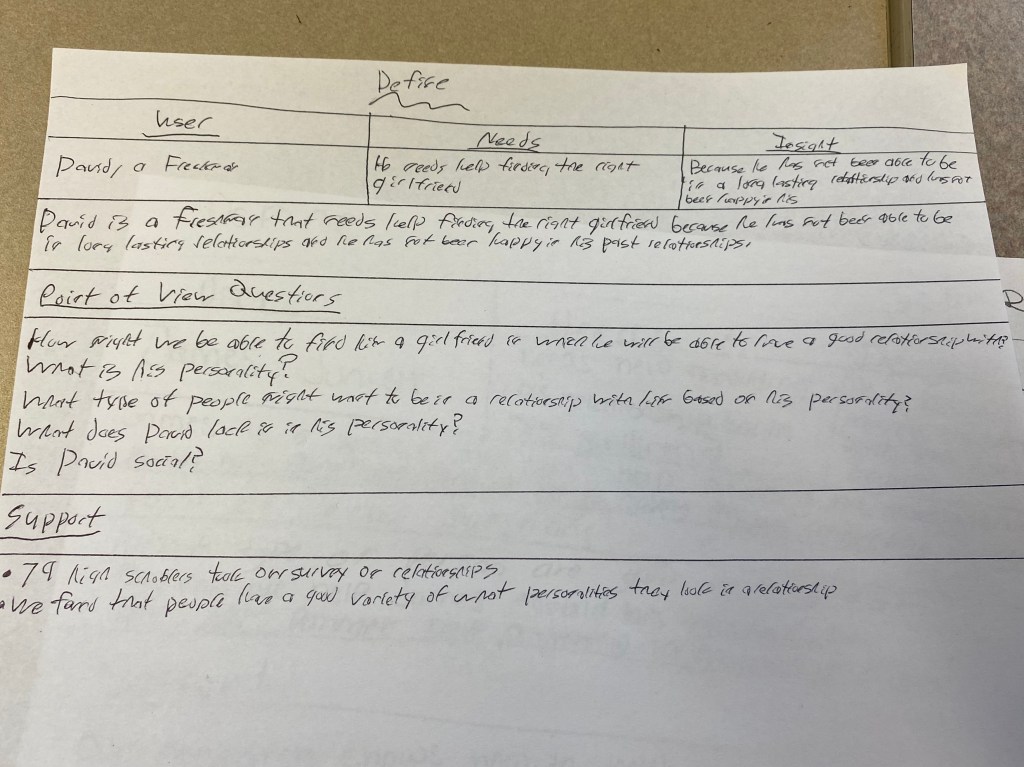 Define
User
Needs
Insight
David, a Freshman
He needs help finding the right
girlfriend
Because he has not been able to be
in a long lasting relationship and has not
been happy in his
David is a Freshman that needs help finding the right girlfriend because he has not been able to be
in long lasting relationships and he has not been happy in his past relationships.
Point of View Questions
How might we be able to find him a girlfriend in when he will be able to have a good relationship with?
What is his personality?
What type of people might want to be in a relationship with him based on his personality?
What does David lack in his personality?
Is David social?
Support
• 79 high schoolers took our survey on relationships
• We found that people have a good variety of what personalities they look in a relationship